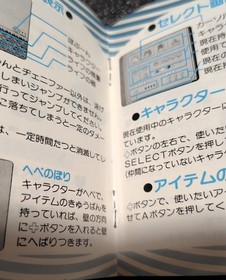 表示
キャラクターの情報
ライフの値
んとチェニファー以外は、溶け
しまいジャンプができません。
行ってジャンプしてください。
に落ちてしまうと一定のダメー
は、一定時間たつと消滅してし
へべのぼり
キャラクターがへべで、
アイテムのきゅうばんを
持っていれば、壁の方向
に✚ボタンを入れると壁
にへばりつきます。
●セレクト画
カーソル
現在
現在持
●キャラクター
現在使用中のキャラクター
ています。
✚ボタンの左右で、使いた
SELECTボタンを押し
(仲間になっていないキャラ
●アイテムの
✚ボタンで、使いたいア
せてAボタンを押してく